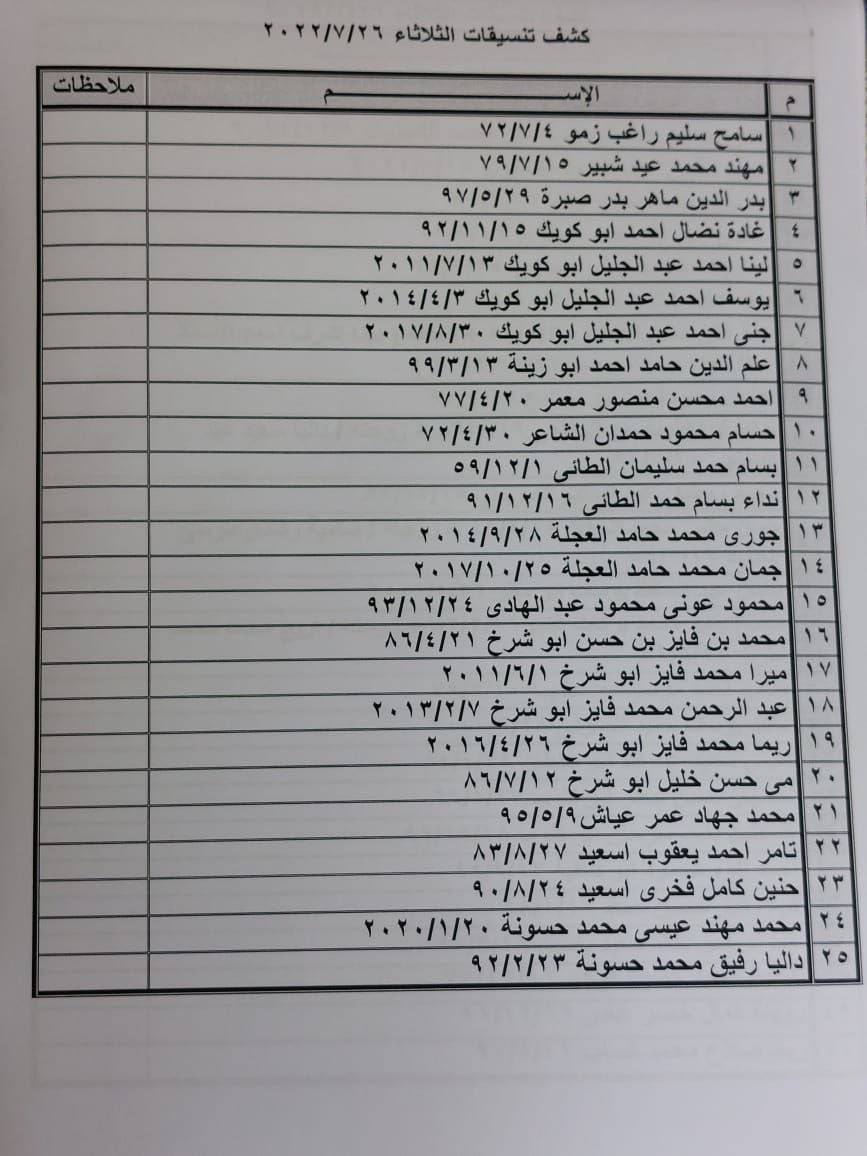 كشف تنسيقات الثلاثاء ٢٠٢٢/٧/٢٦
م الإســـــــم ملاحظات
١ سامح سليم راغب زمو ٧٢/٧/٤
٢ مهند محمد عيد شبير ٧٩/٧/١٥
٣ بدر الدين ماهر بدر صبرة ٩٧/٥/٢٩
٤ غادة نضال احمد ابو كويك ٩٢/١١/١٥
٥ لينا احمد عبد الجليل ابو كويك ٢٠١١/٧/١٣
٦ يوسف احمد عبد الجليل ابو كويك ٢٠١٤/٤/٣
٧ جنى احمد عبد الجليل ابو كويك ٢٠١٧/٨/٣٠
٨ علم الدين حامد احمد ابو زينة ٩٩/٣/١٣
٩ احمد محسن منصور معمر ٧٧/٤/٢٠
١٠ حسام محمود حمدان الشاعر ٧٢/٤/٣٠
١١ بسام حمد سليمان الطائى ٥٩/١٢/١
١٢ نداء بسام حمد الطائى ٩١/١٢/١٦
١٣ جورى محمد حامد العجلة ٢٠١٤/٩/٢٨
١٤ جمان محمد حامد العجلة ٢٠١٧/١٠/٢٥
١٥ محمود عونى محمود عبد الهادى ٩٣/١٢/٢٤
١٦ محمد بن فايز بن حسن ابو شرخ ٨٦/٤/٢١
١٧ ميرا محمد فايز ابو شرخ ٢٠١١/٦/١
١٨ عبد الرحمن محمد فايز ابو شرخ ٢٠١٣/٢/٧
١٩ ريما محمد فايز ابو شرخ ٢٠١٦/٤/٢٦
٢٠ مى حسن خليل ابو شرخ ٨٦/٧/١٢
٢١ محمد جهاد عمر عياش ٩٥/٥/٩
٢٢ تامر احمد يعقوب اسعيد ٨٣/٨/٢٧
٢٣ حنين كامل فخرى اسعيد ٩٠/٨/٢٤
٢٤ محمد مهند عيسى محمد حسونة ٢٠٢٠/١/٢٠
٢٥ داليا رفيق محمد حسونة ٩٢/٢/٢٣